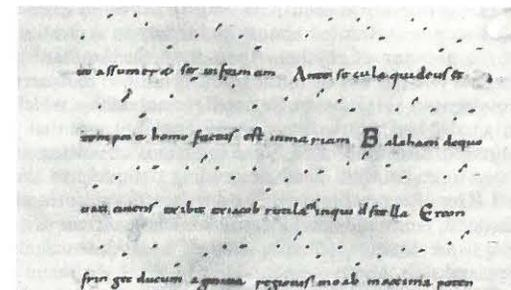 assumere formam Ante secula qui deus et
tempore homo factus est in mariam Balaham de quo
iacob rutilans inquid stella Et con
frin get ducum agmina regionis moab maxima poten